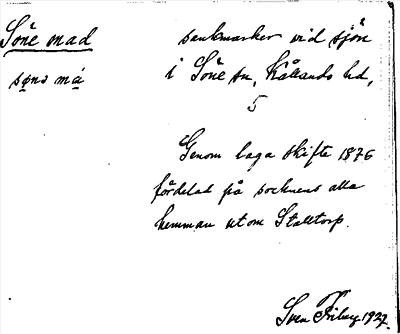 Söne mad
sankmarker vid sjön
sønə má
i Söne sn, Kållands hd,
5
Genom laga skifte 1876
fördelad på socknens alla
hemman utom Stalltorp.
Sven Friberg 1927.